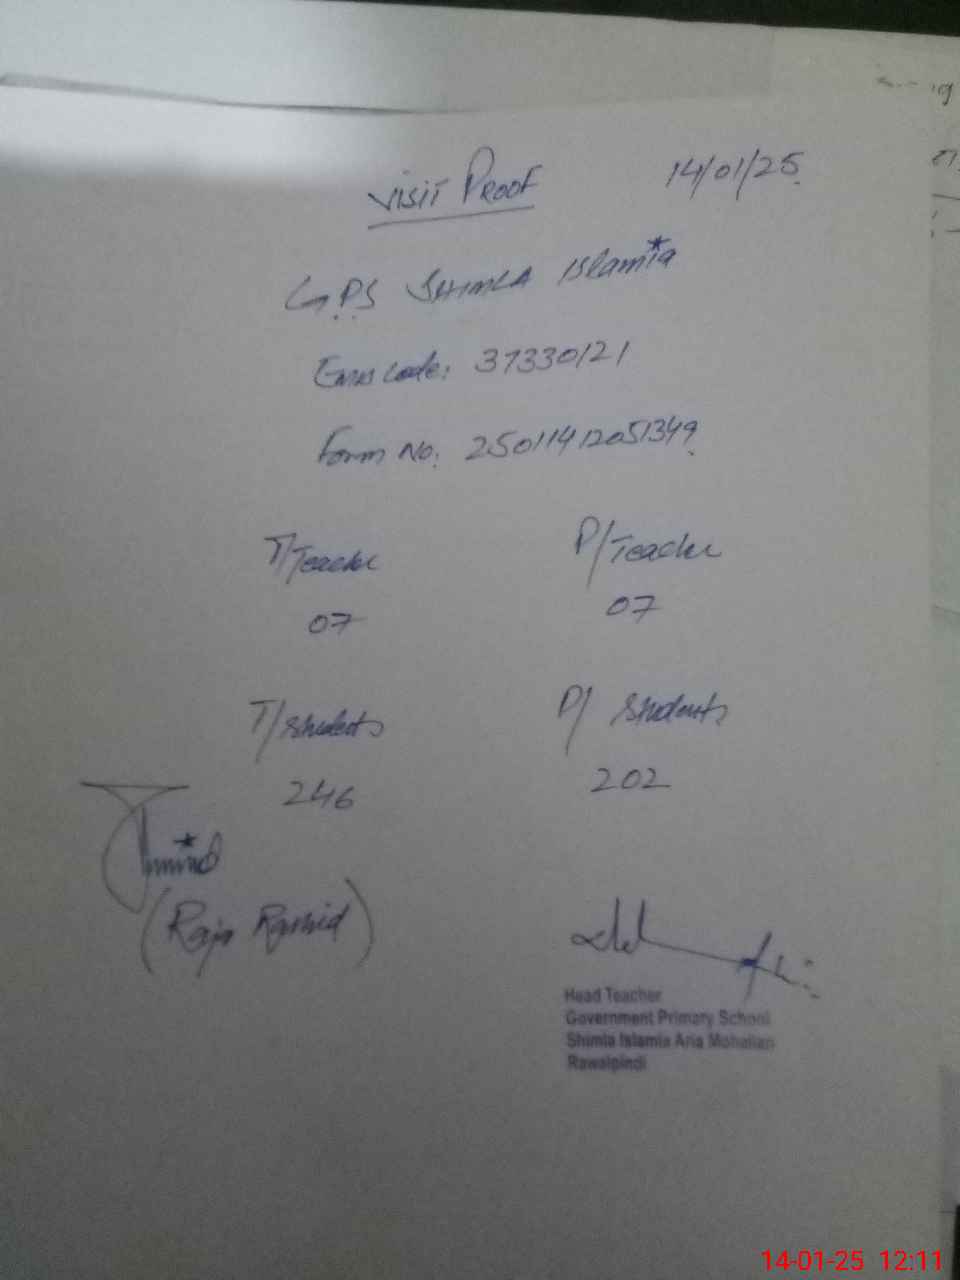 Visit Proof 14/01/25.
G.P.S SHIMLA Islamia
Emis Code: 37330121
Form No. 25011412051349
T/Teacher P/Teacher
07 07
T/Students P/Students
246 202
(Raja Rashid)
Head Teacher
Government Primary School
Shimla Islamia Aria Mohallah
Rawalpindi
14-01-25 12:11